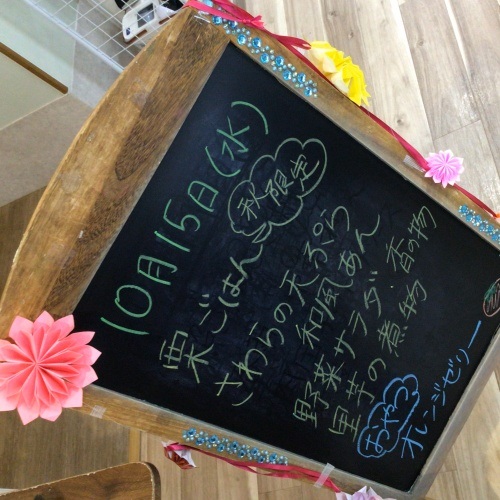 10月15日(水)
栗ごはん 秋限定
さわらの天ぷら
和風あん
野菜サラダ・香の物
里芋の煮物
おやつ オレンジゼリー